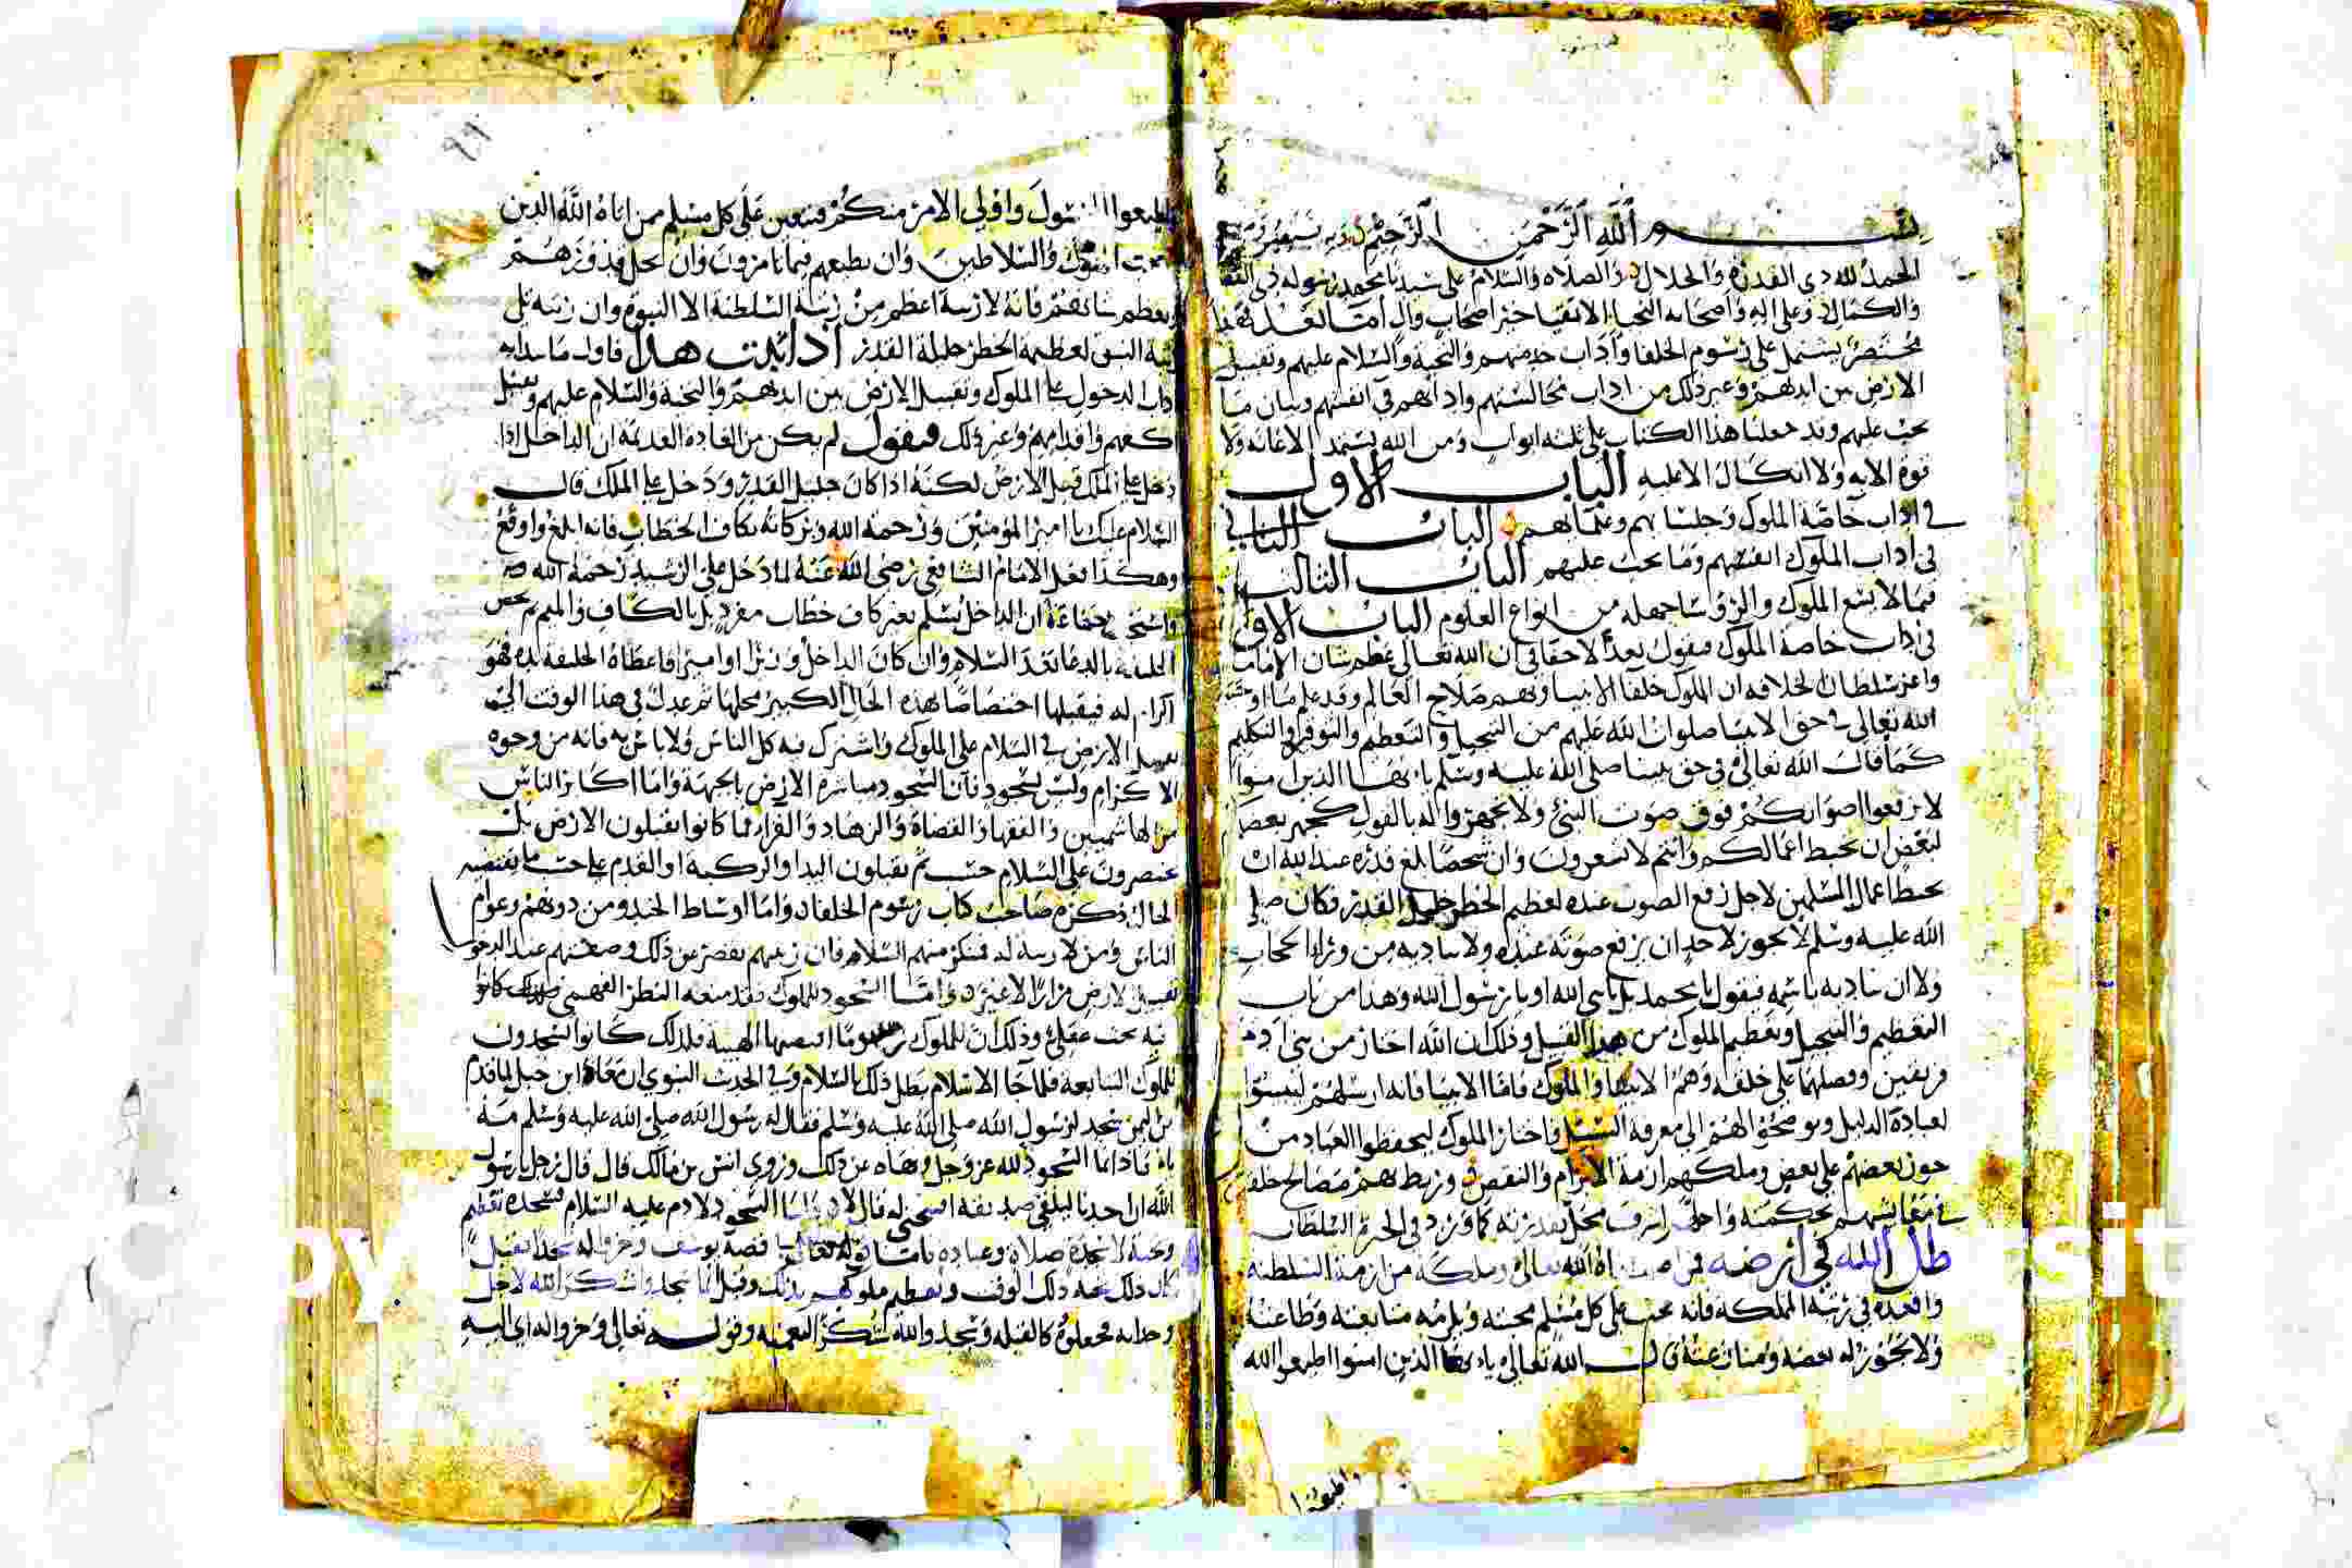 بسم الله الرحمن الرحيم وبه نستعين
الحمد لله ذي القدرة والجلال والصلاة والسلام على سيدنا محمد رسوله ذي
والكمال وعلى اله واصحابه النجبا الاتقيا خير اصحاب وال اما بعد
مختصر يشتمل على رسوم الخلفا واداب خدمتهم والتحية والسلام عليهم وتقبيل
الارض بين ايديهم وغير ذلك من اداب مجالستهم وادابهم في انفسهم وبيان ما
يجب عليهم وقد جعلنا هذا الكتاب على ثلثه ابواب ومن الله نستمد الاعانه ولا
قوة الا به ولا اتكال الا عليه الباب الاول
في اداب خاصة الملوك وجلسايهم وعلمايهم الباب الثاني
في اداب الملوك انفسهم وما يجب عليهم الباب الثالث
فيما لا يسع الملوك والروسا جهله من انواع العلوم الباب الاول
في اداب خاصة الملوك فنقول بعد لا خفا في ان الله تعالى عظم شان الامامة
واعز سلطان الخلافه ان الملوك خلفا الانبيا وبهم صلاح العالم وقد علم ما اوجب
الله تعالى في حق الانبيا صلوات الله عليهم من التبجيل والتعظيم والتوقير والتكريم
كما قال الله تعالى في حق نبينا صلى الله عليه وسلم يا ايها الذين امنوا
لا ترفعوا اصواتكم فوق صوت النبي ولا تجهروا له بالقول كجهر بعضكم
لبعض ان تحبط اعمالكم وانتم لا تشعرون وان شخصا بلغ قدره عند الله ان
يحبط اعمال المسلمين لاجل رفع الصوت عنده لعظيم الخطر جليل القدر فكان صلى
الله عليه وسلم لا يجوز لاحد ان يرفع صوته عنده ولا يناديه من ورا الحجاب
ولا ان يناديه باسمه فيقول يا محمد بل يا نبي الله او يا رسول الله وهذا من باب
التعظيم والتبجيل وتعظيم الملوك من هذا القبيل وذلك ان الله اختار من بني ادم
فريقين وفضلهما على خلقه وهم الانبيا والملوك فاما الانبيا فانه ارسلهم ليبينوا
لعبادة الدليل ويوضحوا لهم الى معرفة السبيل واختار الملوك ليحفظوا العباد من
بعضهم على بعض وملكهم ازمة الابرام والنقض وربط بهم مصالح خلقه
في معايشهم بحكمته واحلهم اشرف محل بقدرته كما ورد في الخبر السلطان
ظل الله في ارضه فمن اتاه الله تعالى وملكه من ازمة السلطنه
واقعده في رتبة المملكه فانه يجب على كل مسلم محبته ويلزمه متابعته وطاعته
ولا يجوز له بغضه ومنازعته قال الله تعالى يا ايها الذين امنوا اطيعوا الله
واطيعوا
واطيعوا الرسول واولي الامر منكم فيتعين على كل مسلم ممن اتاه الله الدين
الملوك والسلاطين وان يطيعهم فيما يامرون وان يجل قدرهم
ويعظم شانهم فانه لا رتبة اعظم من رتبة السلطنة الا النبوة وان رتبه تلي
رتبة النبي لعظيمة الخطر جليلة القدر اذا ثبت هذا فاول ما نبدا به
اداب الدخول على الملوك وتقبيل الارض بين ايديهم والتحية والسلام عليهم وتقبيل
اكفهم واقدامهم وغير ذلك فنقول لم يكن من العادة القديمه ان الداخل اذا
دخل على الملك قبل الارض لكنه اذا كان جليل القدر ودخل على الملك قال
السلام عليك يا امير المومنين ورحمة الله وبركاته بكاف الخطاب فانه ابلغ واوقع
وهكذا فعل الامام الشافعي رضي الله عنه لما دخل على الرشيد رحمة الله
جماعة ان الداخل يسلم بغير كاف خطاب مفرد بل بالكاف والميم ثم يخص
الخليفة بالدعا بعد السلام وان كان الداخل وزيرا او اميرا فاعطاه الخليفه يده فهو
اكرام له فيقبلها اختصاصا بهذه الحال الكبير محلها ثم عدل في هذا الوقت الى
تقبيل الارض في السلام على الملوك واشترك فيه كل الناس ولا باس به فانه من وجوه
الاكرام وليس بسجود فان السجود مباشرة الارض بالجبهة واما اكابر الناس
من الهاشميين والفقها والقضاة والزهاد والقرا فما كانوا يقبلون الارض بل
يقتصرون على السلام حسب ثم يقبلون اليد او الركبة او القدم على حسب ما تقتضيه
الحال ذكره صاحب كتاب رسوم الخلفا واما اوساط الجند ومن دونهم وعوام
الناس ومن لا رتبة له فينكر منهم السلام فان رتبهم تقصر عن ذلك وصفتهم عند الدخول
تقبيل الارض مرارا لا غير واما السجود للملوك فقد منعه النظر الفهمي
فيه بحث عقلي وذلك ان للملوك رسوما اقتضتها الهيبة فلذلك كانوا يسجدون
للملوك التبابعه فلما جا الاسلام بطل ذلك بالسلام وفي الحديث النبوي ان معاذ ابن جبل لما قدم
من اليمن سجد لرسول الله صلى الله عليه وسلم فقال له رسول الله صلى الله عليه وسلم مه
يا معاذ انما السجود لله عز وجل ونهاه عن ذلك وروى انس بن مالك قال قال رجل يا رسول
الله ان احدنا ليلقى صديقه افينحني له قال لا واما السجود لادم عليه السلام فسجدة تعظيم
وتحية لا سجدة صلاة وعبادة واما قوله تعالى في قصة يوسف وخروا له سجدا فقيل
كان ذلك تحية ذلك الوقت وتعظيم ملوكهم بذلك وقيل انما سجدوا شكرا لله لاجل
وجدانه فجعلوه كالقبلة وسجدوا لله شكرا لنعمته وقوله تعالى وخروا له اي اليه